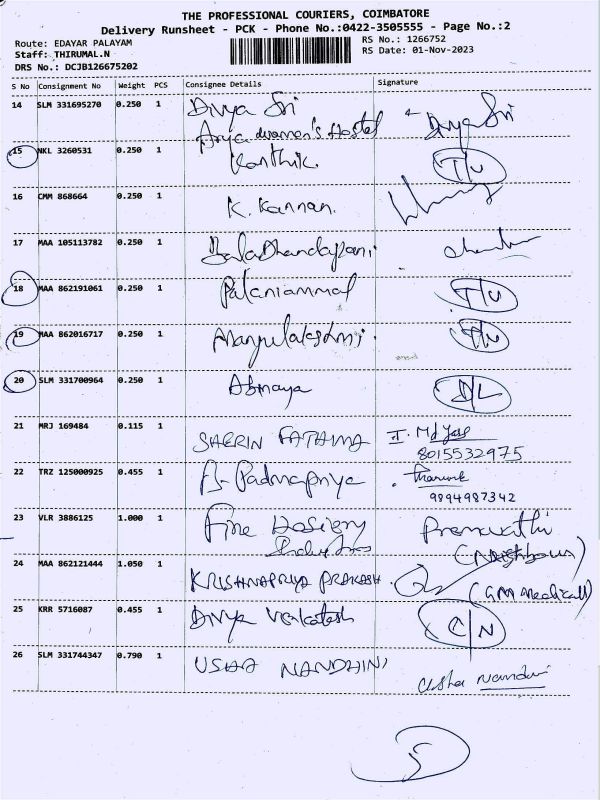 THE PROFESSIONAL COURIERS, COIMBATORE
Delivery Runsheet - PCK - Phone No.:0422-3505555 - Page No.:2
Route: EDAYAR PALAYAM
RS No.: 1266752
Staff: THIRUMAL.N
RS Date: 01-Nov-2023
DRS No.: DCJB126675202
S No Consignment No Weight PCS Consignee Details Signature
14 SLM 331695270 0.250 1 Divya Sri Divya Sri
Arya women's Hostel
15 NKL 3260531 0.250 1 Karthik T/U
16 CMM 868664 0.250 1 K. Kannan.
17 MAA 105113782 0.250 1 BalaDhandapani
18 MAA 862191061 0.250 1 Palaniammal T/U
19 MAA 862016717 0.250 1 Manjulakshmi T/U
20 SLM 331700964 0.250 1 Abinaya D/L
21 MRJ 169484 0.115 1 SHERIN FATHIMA I. Md
8015532975
22 TRZ 125000925 0.455 1 Padmapriya
9894987342
23 VLR 3886125 1.000 1 Fine Hosiery Premavathi
Industries (Neighbour)
24 MAA 862121444 1.050 1 KRISHNAPRIYA PRAKASH
(GM Medicall)
25 KRR 5716087 0.455 1 Divya Venkatesh C/N
26 SLM 331744347 0.790 1 USHA NANDHINI Usha Nandini